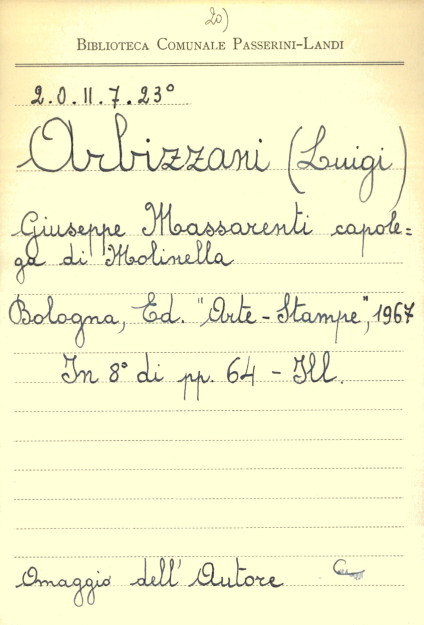 20)
BIBLIOTECA COMUNALE PASSERINI-LANDI
2.0.II.7.23°
Arbizzani (Luigi)
Giuseppe Massarenti capole=
ga di Molinella
Bologna, Ed. "Arte-Stampe", 1967
In 8° di pp. 64 - Ill.
Omaggio dell'Autore